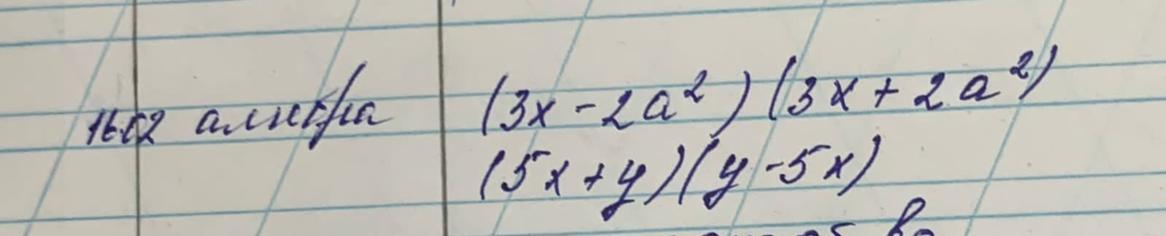 алгебра (3x - 2a²)(3x + 2a²)
(5x + y)(y - 5x)